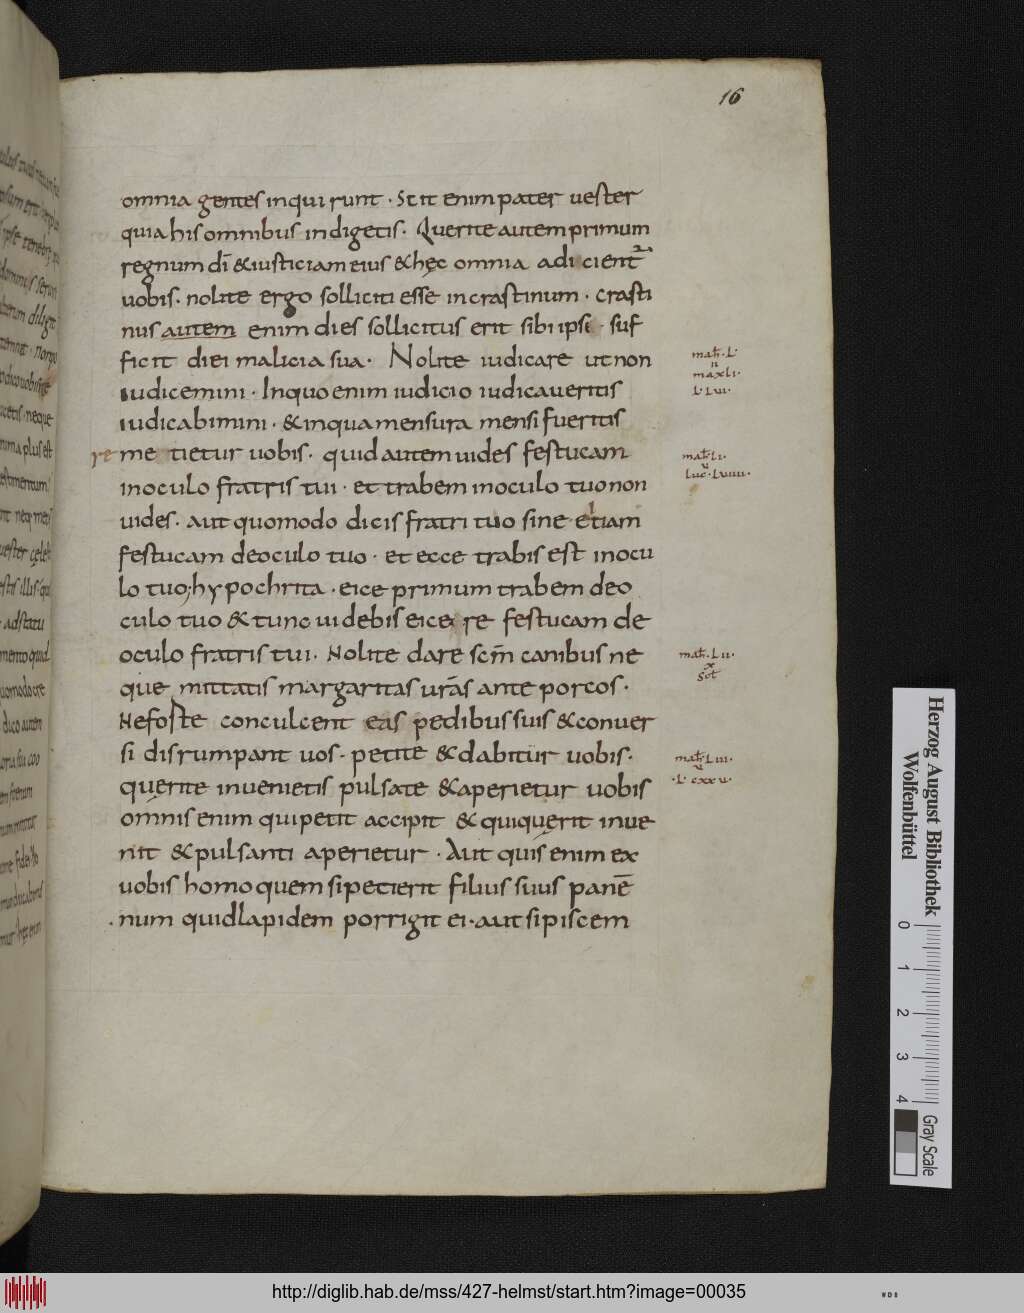 16
omnia gentes inquirunt · Scit enim pater uester
quia his omnibus indigetis · Querite autem primum
regnum dī & iusticiam eius & hęc omnia adicient᷑
uobis · nolite ergo solliciti esse in crastinum · crasti
nus autem enim dies sollicitus erit sibi ipsi · suf
ficit diei malicia sua · Nolite iudicare ut non
iudicemini · In quo enim iudicio iudicaueritis
iudicabimini · & in qua mensura mensi fueritis
re me tietur uobis · quid autem uides festucam
in oculo fratris tui · et trabem in oculo tuo non
uides · aut quomodo dicis fratri tuo sine etiam
festucam de oculo tuo · et ecce trabis est in ocu
lo tuo; hypochrita · eice primum trabem de o
culo tuo & tunc uidebis eicere festucam de
oculo fratris tui · Nolite dare scm̄ canibus ne
que mittatis margaritas urās ante porcos ·
Ne forte conculcent eas pedibus suis & conuer
si disrumpant uos · petite & dabitur uobis ·
querite inuenietis pulsate & aperietur uobis
omnis enim qui petit accipit & qui querit inue
nit & pulsanti aperietur · Aut quis enim ex
uobis homo quem si petierit filius suus panē
· num quid lapidem porrigit ei · aut si piscem
mat̄h · L ·
ii
ma xli ·
L · Lvi ·
mat̄h · Li ·
v
luc · Lviiii ·
mat̄h · Lii ·
x
Sol
mat̄h · Liii ·
v
· L · cxxv ·
Herzog August Bibliothek
Wolfenbüttel
0 1 2 3 4
Gray Scale
http://diglib.hab.de/mss/427-helmst/start.htm?image=00035
WDB